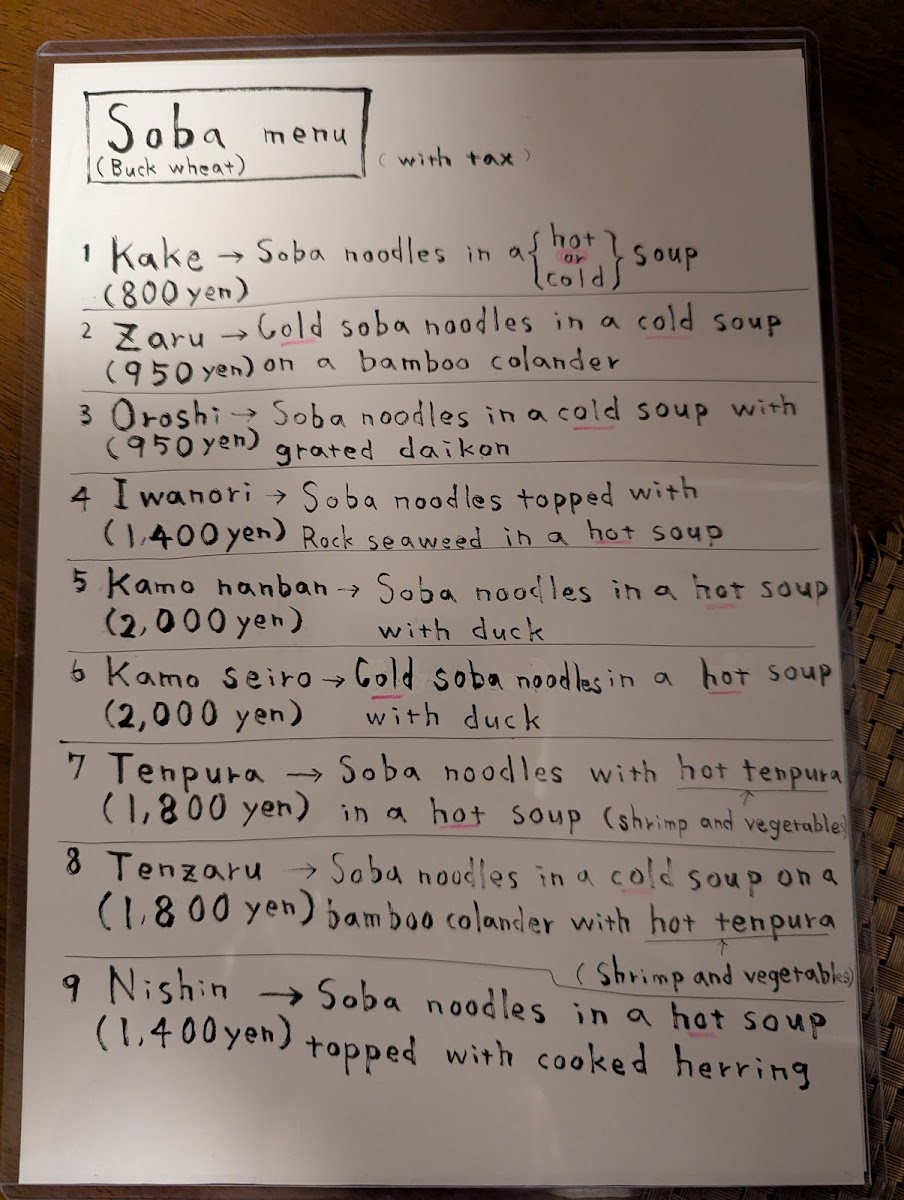 Soba menu
(Buck wheat)
(with tax)
1 Kake → Soba noodles in a { hot or cold } soup
(800 yen)
2 Zaru → Cold soba noodles in a cold soup
(950 yen) on a bamboo colander
3 Oroshi → Soba noodles in a cold soup with
(950 yen) grated daikon
4 Iwanori → Soba noodles topped with
(1,400 yen) Rock seaweed in a hot soup
5 Kamo nanban → Soba noodles in a hot soup
(2,000 yen) with duck
6 Kamo seiro → Cold soba noodles in a hot soup
(2,000 yen) with duck
7 Tenpura → Soba noodles with hot tenpura
(1,800 yen) in a hot soup (shrimp and vegetables)
8 Tenzaru → Soba noodles in a cold soup on a
(1,800 yen) bamboo colander with hot tenpura
(Shrimp and vegetables)
9 Nishin → Soba noodles in a hot soup
(1,400 yen) topped with cooked herring